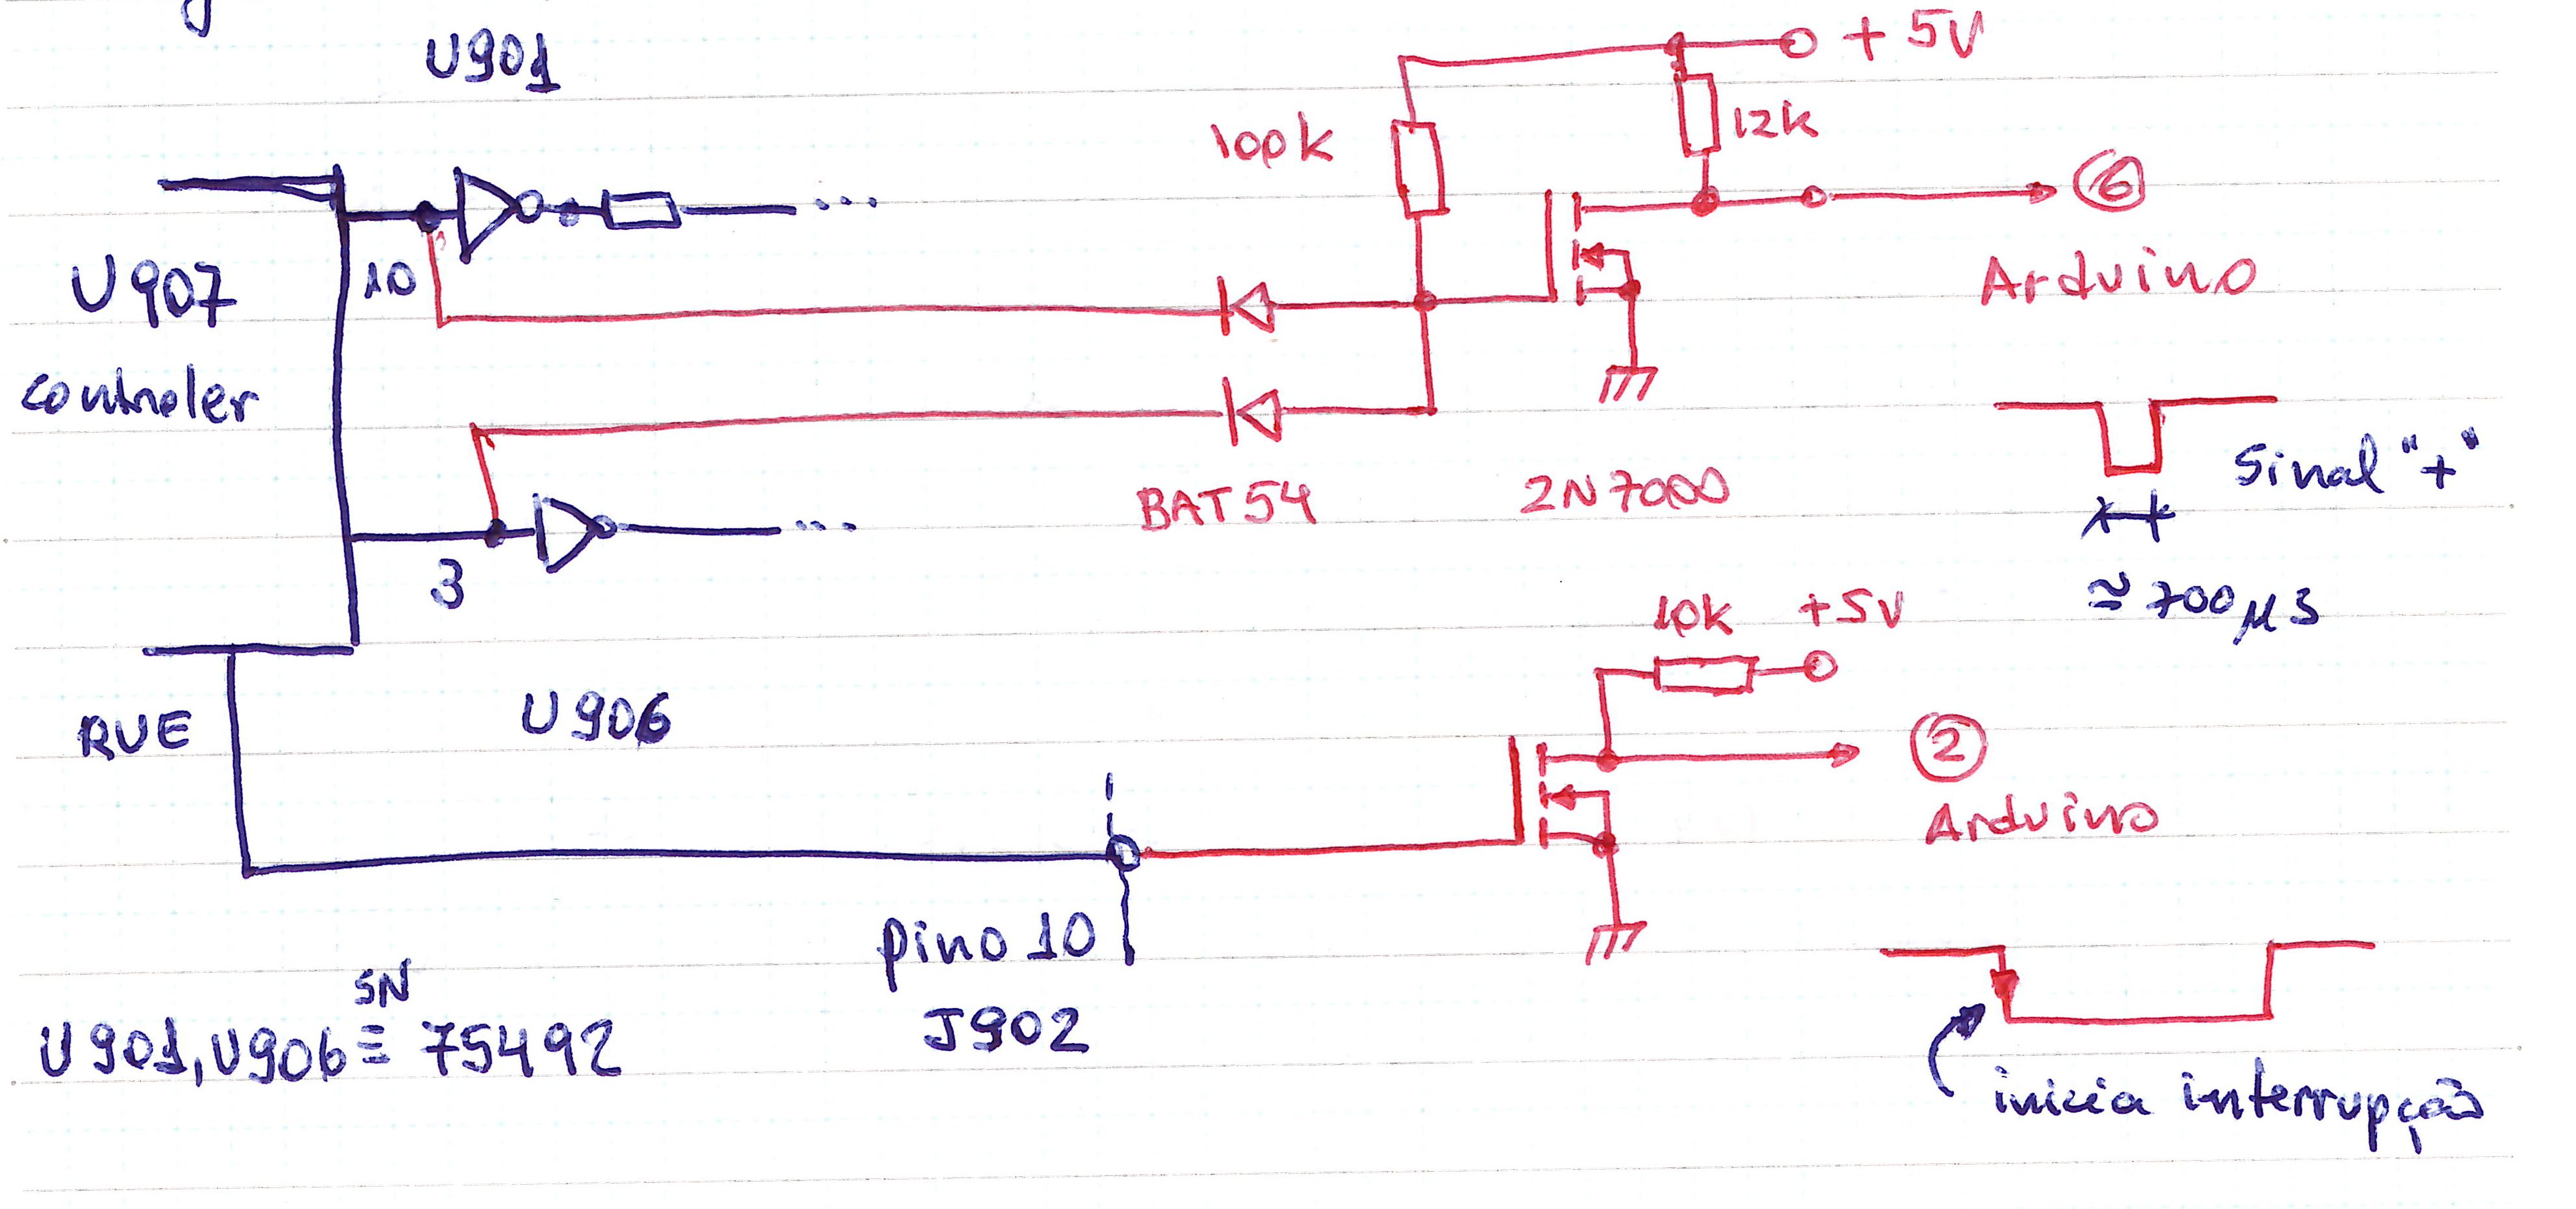 U901
+ 5V
100k
12k
6
10
U907
Arduino
controler
Sinal "+"
BAT54
2N7000
3
≅ 700 μs
10k +5V
RUE
U906
2
Arduino
pino 10
J902
SN
U901, U906 ≡ 75492
inicia interrupção